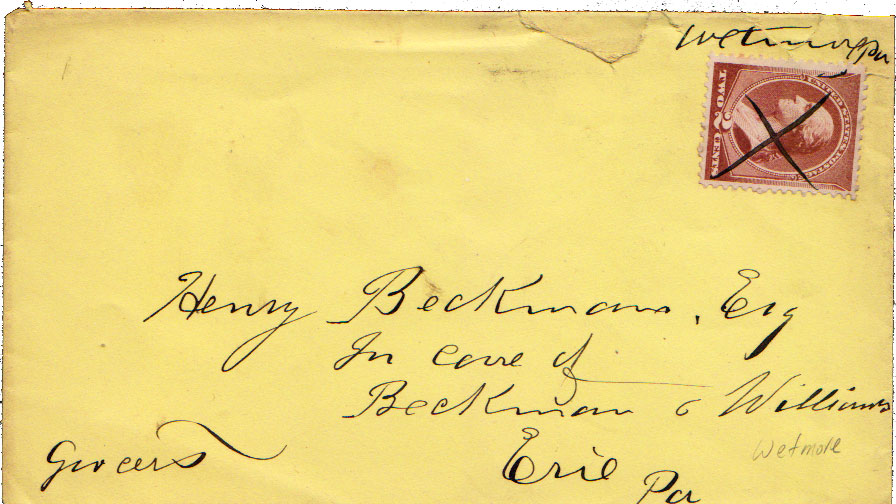 Wetmore Pa
UNITED STATES POSTAGE
TWO 2 CENTS
Henry Beckman, Esq
In care of
Beckman & Williams
Wetmore
Grocers
Erie
Pa